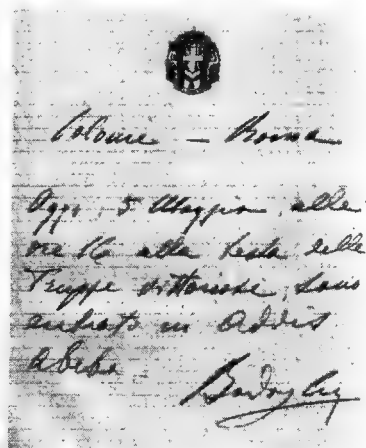 Colonie — Roma
Oggi, 5 Maggio, alle
ore 16 alla testa delle
Truppe vittoriose, sono
entrato in Addis
Abeba
Badoglio